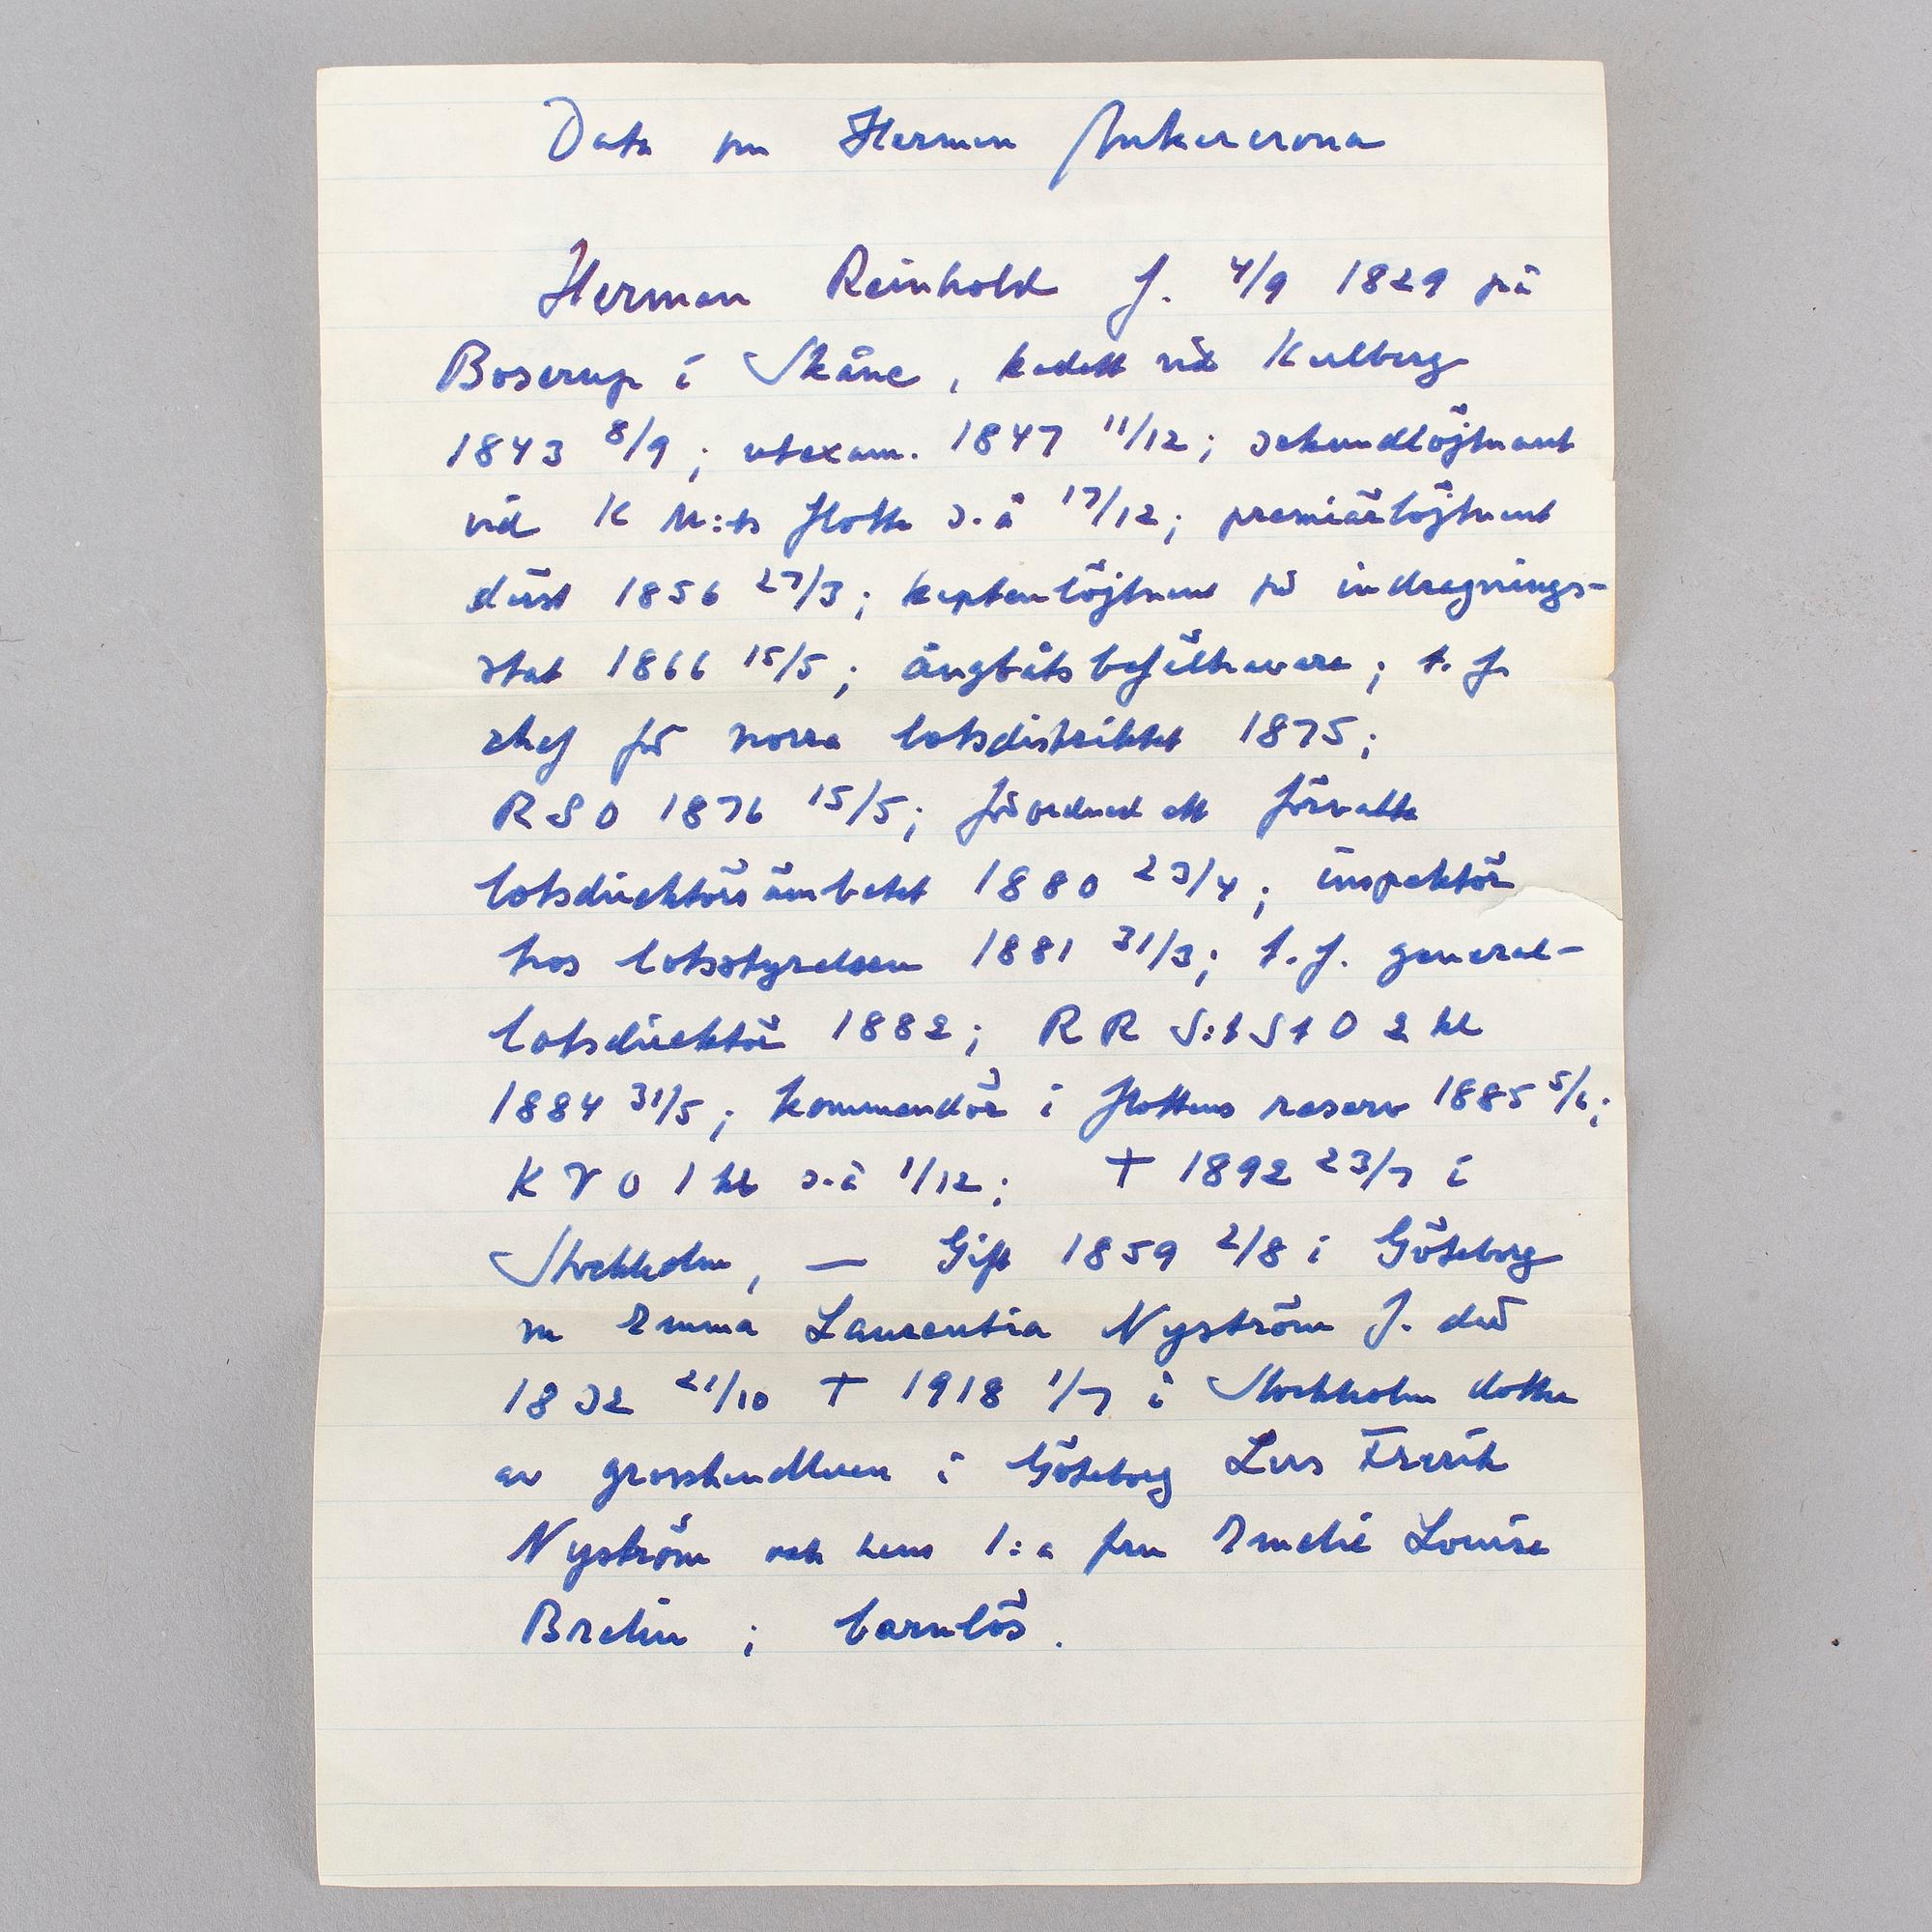 Data om Herman Ankarcrona
Herman Reinhold f. 4/9 1829 på
Boserup i Skåne, kadett vid Karlberg
1843 8/9; utexam. 1847 11/12; sekundlöjtnant
vid K M:ts flotta s.å 17/12; premiärlöjtnant
därst 1856 27/3; kaptenlöjtnant på indragnings-
stat 1866 15/5; ångbåtsbefälhavare; t.f.
chef för norra lotsdistriktet 1875;
RSO 1876 15/5; förordnad att förvalta
lotsdirektörsämbetet 1880 23/4; inspektör
hos lotsstyrelsen 1881 31/3; t.f. general-
lotsdirektör 1882; R R S:t St O 2 kl
1884 31/5; kommendör i flottans reserv 1885 5/6;
K V O 1 kl s.å 1/12; † 1892 23/7 i
Stockholm, — Gift 1859 2/8 i Göteborg
m Emma Laurentia Nyström f. där
1832 21/10 † 1918 1/7 i Stockholm dotter
av grosshandlaren i Göteborg Lars Fredrik
Nyström och hans 1:a fru Emelie Louise
Brelin; barnlös.